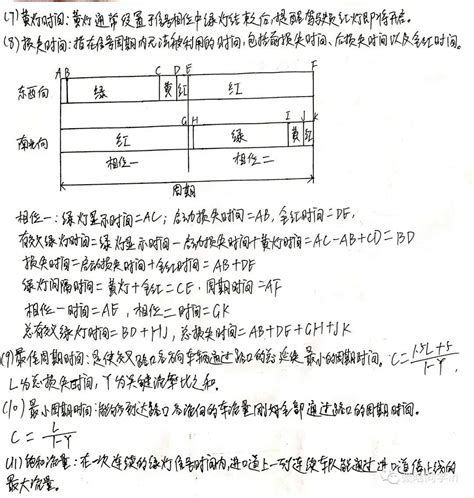 (7) 黄灯时间：黄灯通常设置于信号相位中绿灯结束后，提醒驾驶员红灯即将开启。
(8) 损失时间：指在信号周期内无法被利用的时间，包括前损失时间、后损失时间以及全红时间。
A B C D E F
东西向 绿 黄 红 红
G H I J K
南北向 红 绿 黄 红
相位一 相位二
周期
相位一：绿灯显示时间=AC；启动损失时间=AB，全红时间=DE，
有效绿灯时间=绿灯显示时间-启动损失时间+黄灯时间=AC-AB+CD=BD
损失时间=启动损失时间+全红时间=AB+DE
绿灯间隔时间=黄灯+全红=CE，周期时间=AF
相位一时间=AE，相位二时间=GK
总有效绿灯时间=BD+HJ，总损失时间=AB+DE+GH+JK
(9) 最佳周期时间：是使交叉路口各方向车辆通过路口的总延误最小的周期时间。C=1.5L+5/1-Y，
L为总损失时间，Y为关键流率比之和。
(10) 最小周期时间：能够将到达路口各流向的车流量刚好全部通过路口的周期时间。
C=L/1-Y
(11) 饱和流量：在一次连续的绿灯信号时间内，进口道上一列连续车队能通过进口道停止线的
最大流量。